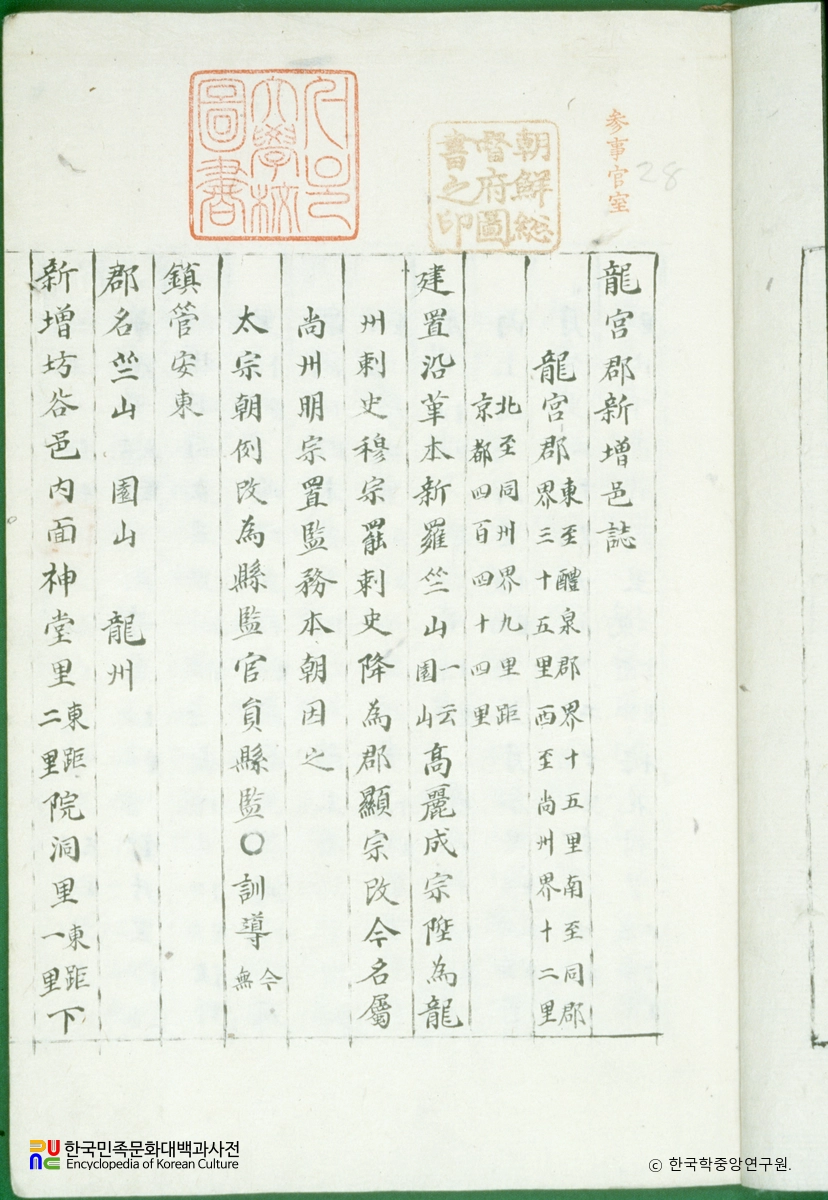 参事官室
28
朝鮮総
督府圖
書之印
大學校
圖書
龍宮郡新增邑誌
龍宮郡東至醴泉郡界十五里南至同郡界三十五里西至尚州界十二里
北至同州界九里距京都四百四十四里
建置沿革本新羅竺山一云園山高麗成宗陞為龍
州刺史穆宗罷刺史降為郡顯宗改今名屬
尚州明宗置監務本朝因之
太宗朝例改為縣監官員縣監〇訓導今無
鎮管安東
郡名竺山 園山 龍州
新增坊谷邑内面神堂里東距二里院洞里東距一里下
한국민족문화대백과사전
Encyclopedia of Korean Culture
© 한국학중앙연구원.